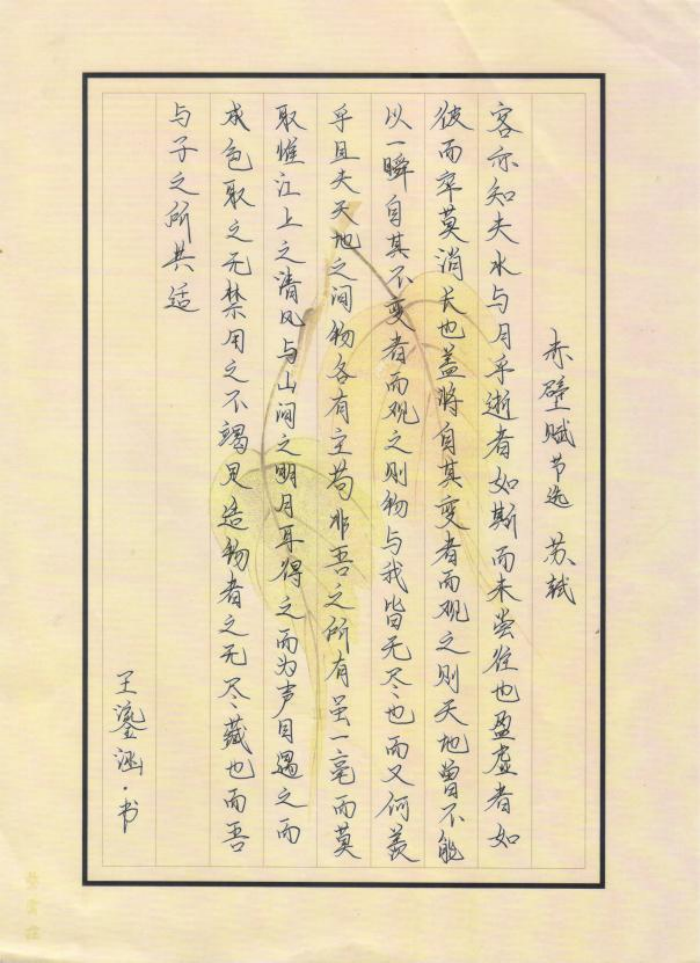 赤壁赋节选 苏轼
客亦知夫水与月乎逝者如斯而未尝往也盈虚者如
彼而卒莫消长也盖将自其变者而观之则天地曾不能
以一瞬自其不变者而观之则物与我皆无尽也而又何羡
乎且夫天地之间物各有主苟非吾之所有虽一毫而莫
取惟江上之清风与山间之明月耳得之而为声目遇之而
成色取之无禁用之不竭是造物者之无尽藏也而吾
与子之所共适
王鎏涵·书